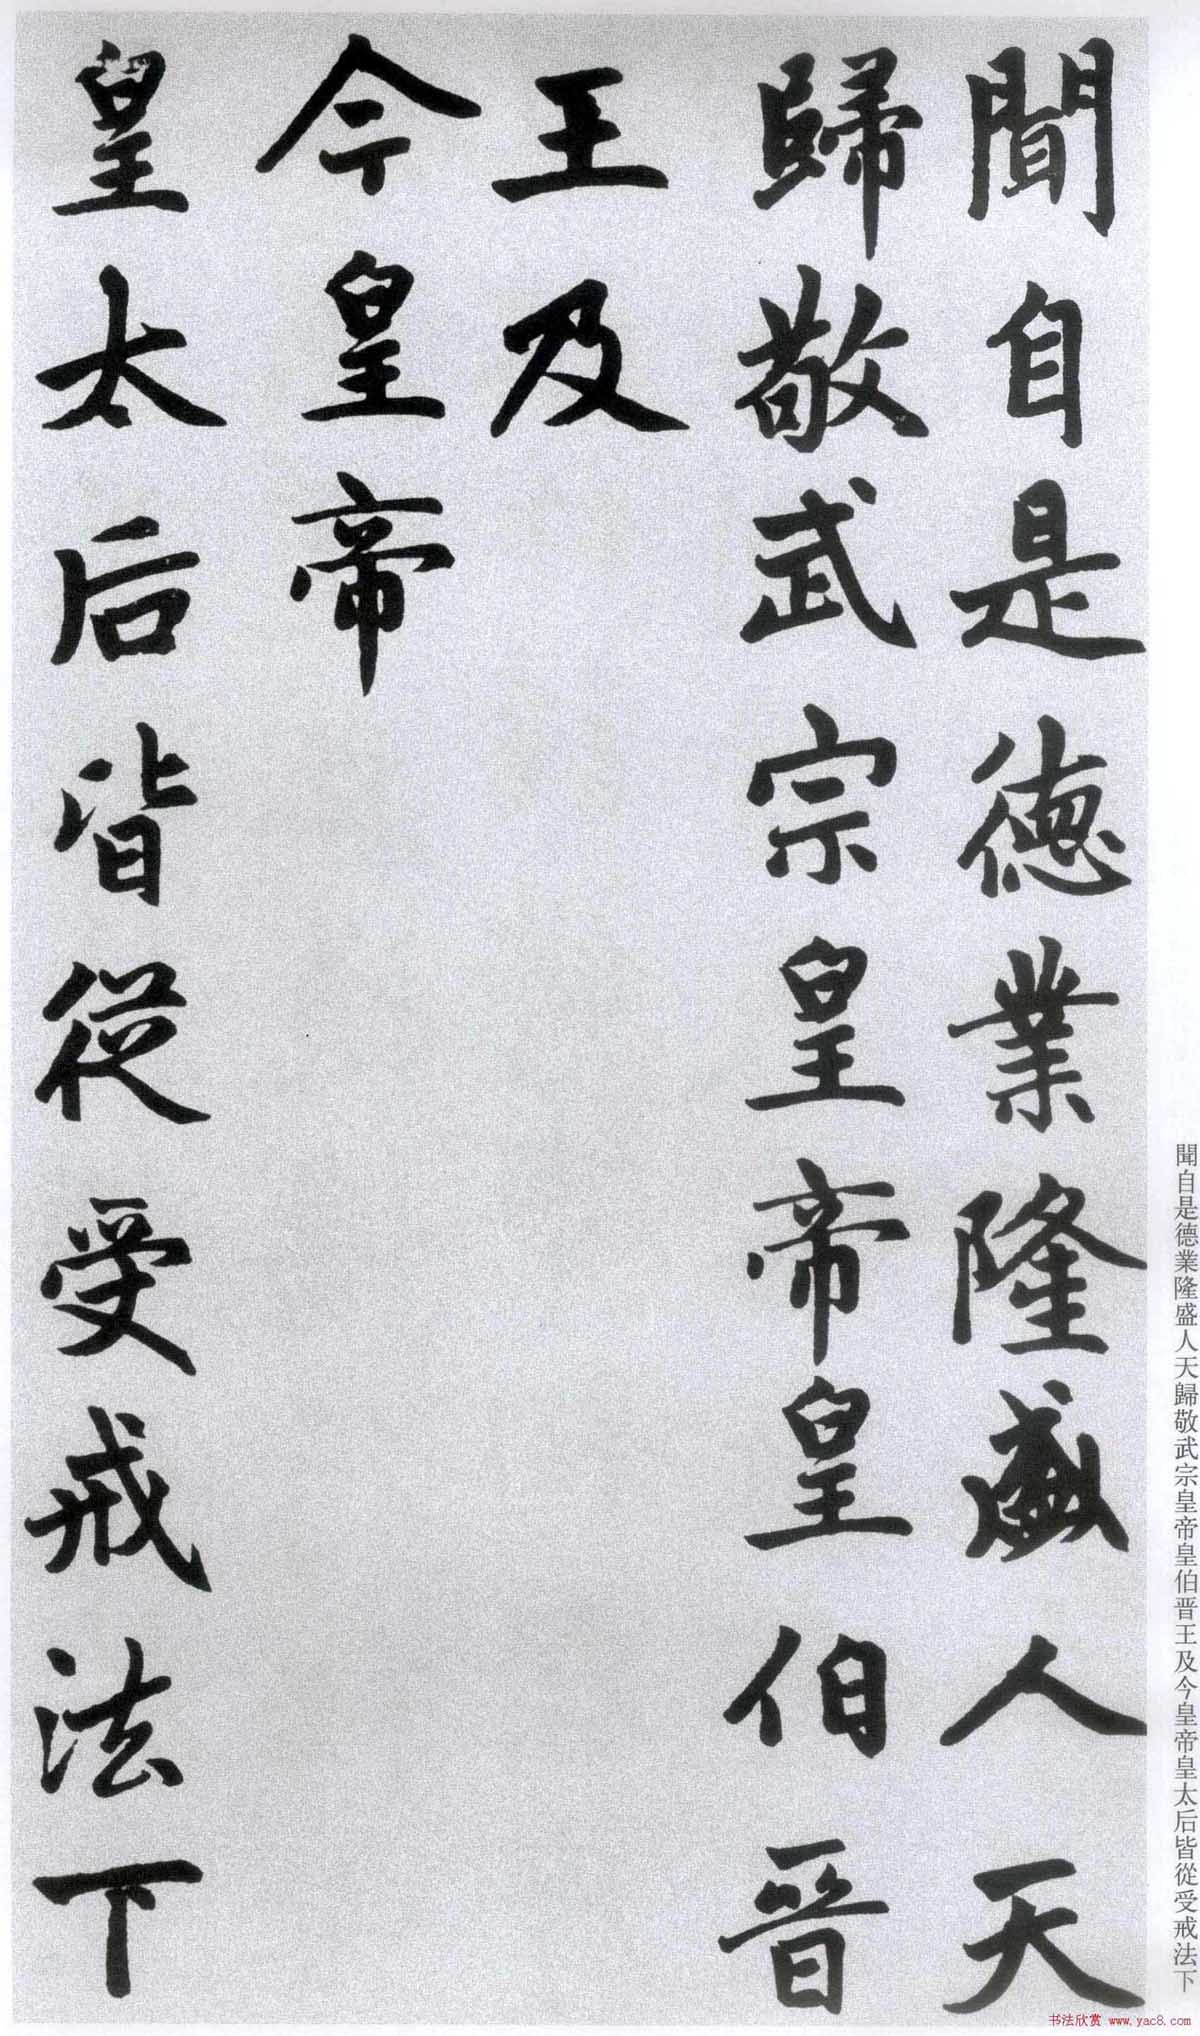 聞自是德業隆盛人天
歸敬武宗皇帝皇伯晋
王及
今皇帝
皇太后皆從受戒法下
聞自是德業隆盛人天歸敬武宗皇帝皇伯晋王及今皇帝皇太后皆從受戒法下
书法欣赏 www.yac8.com